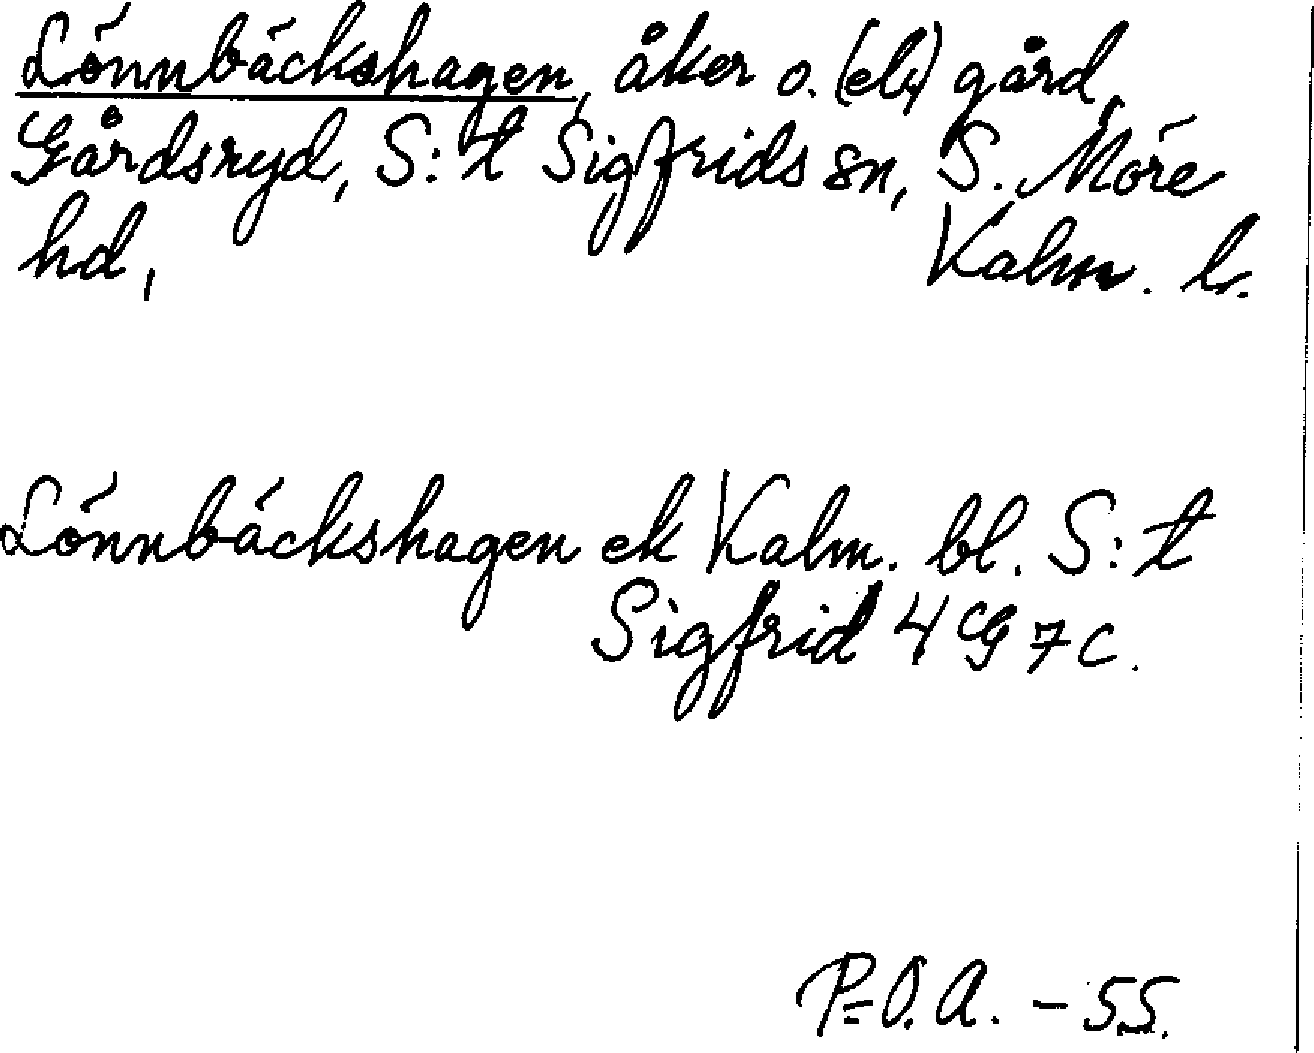 Lönnbäckshagen, åker o. (el.) gård,
Gårdsryd, S:t Sigfrids sn, S. Möre
hd, Kalm. l.
Lönnbäckshagen ek Kalm. bl. S:t
Sigfrid 4 G 7 c.
P-O.A. - 55.